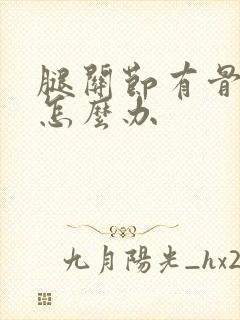 腿關節有骨
怎麼办
九月陽光_hx2